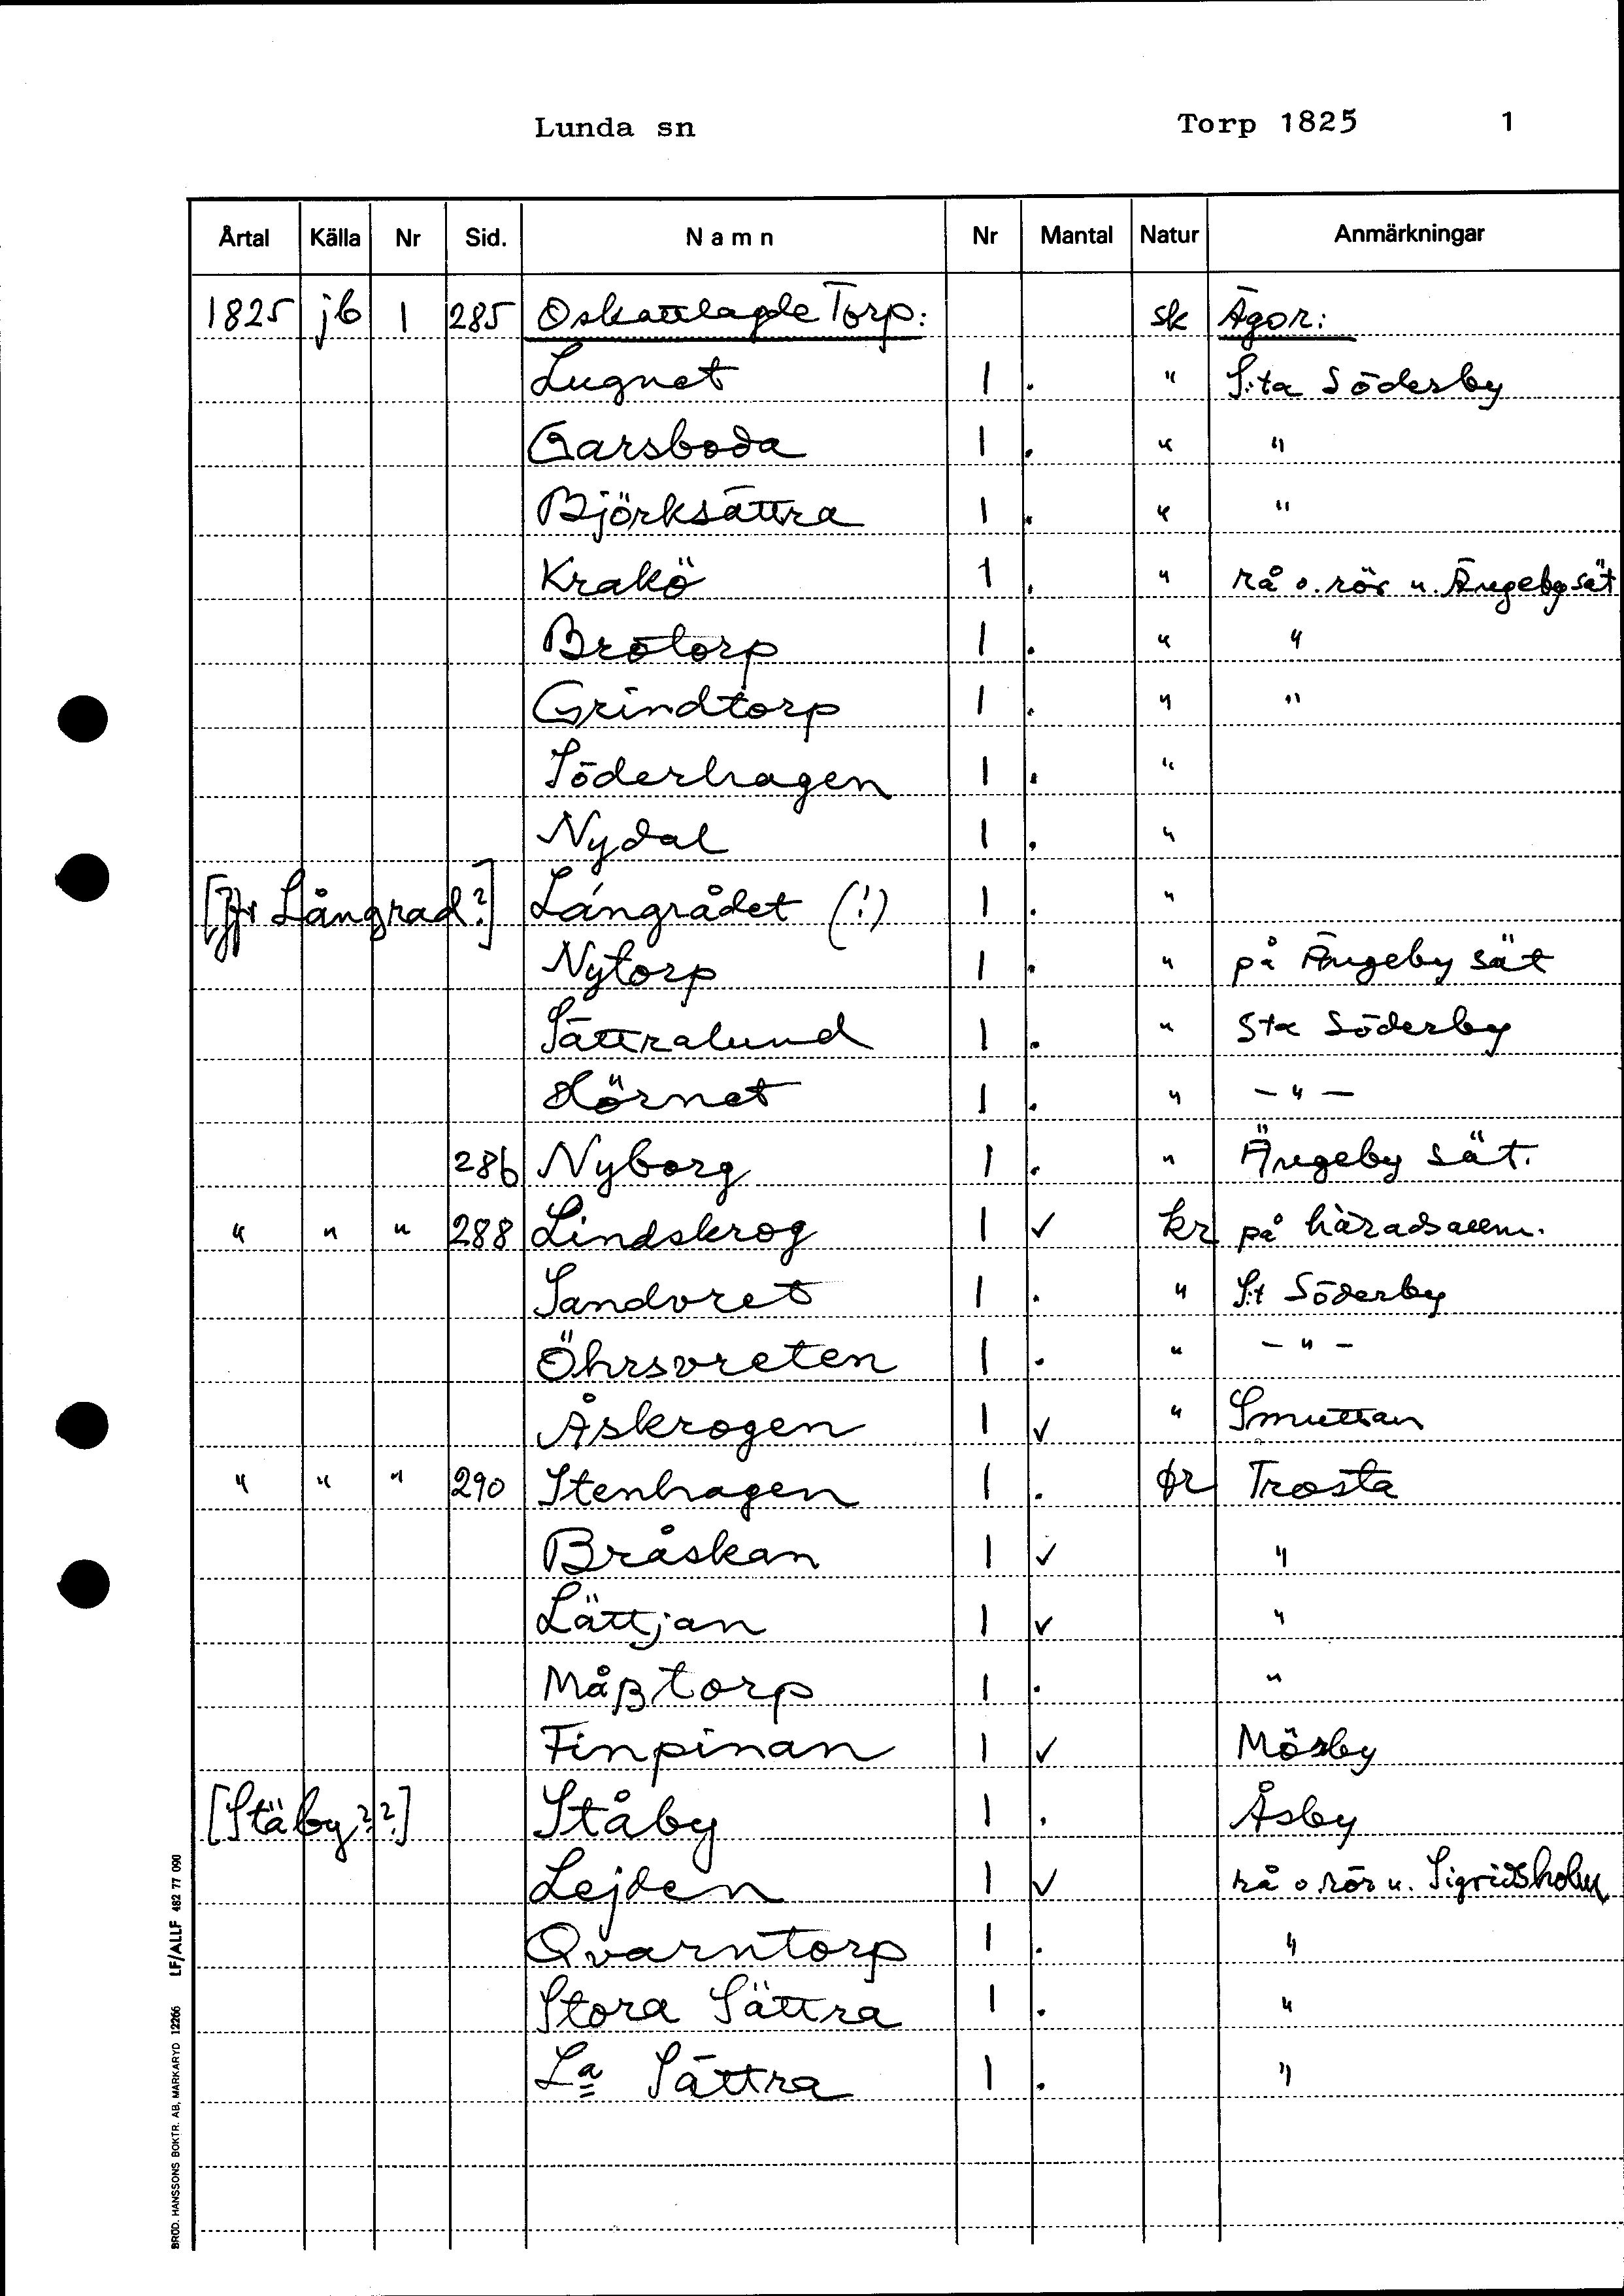 Lunda sn Torp 1825 1
Årtal Källa Nr Sid. Namn Nr Mantal Natur Anmärkningar
1825 jb 1 285 Oskattlagde Torp: sk Ägor:
Lugnet 1 . " S:ta Söderby
Garsboda 1 . " "
Björksättra 1 . " "
Krakö 1 . " rå o. rör u. Ängeby sät
Brötorp 1 . " "
Grindtorp 1 . " "
Söderhagen 1 . "
Nydal 1 . "
[Jfr Långrad?] Långrådet (!) 1 . "
Nytorp 1 . " på Ängeby sät
Sättralund 1 . " Sta Söderby
Hörnet 1 . " – " –
286 Nyborg 1 . " Ängeby sät.
" " " 288 Lindskrog 1 ✓ kr på häradsallm.
Sandvret 1 . " S:t Söderby
Öhrsvreten 1 . " – " –
Åskrogen 1 ✓ " Smuttan
" " " 290 Stenhagen 1 . fr Trosta
Bråskan 1 ✓ "
Lättjan 1 ✓ "
Måßtorp 1 . "
Finpinan 1 ✓ Mösby
[Stäby??] Ståby 1 . Åsby
Lejden 1 ✓ rå o. rör u. Sigridsholm
Qvarntorp 1 . "
Stora Sättra 1 . "
La Sättra 1 . "
BRÖD. HANSSONS BOKTR. AB, MARKARYD 12266 LF/ALLF 482 77 090